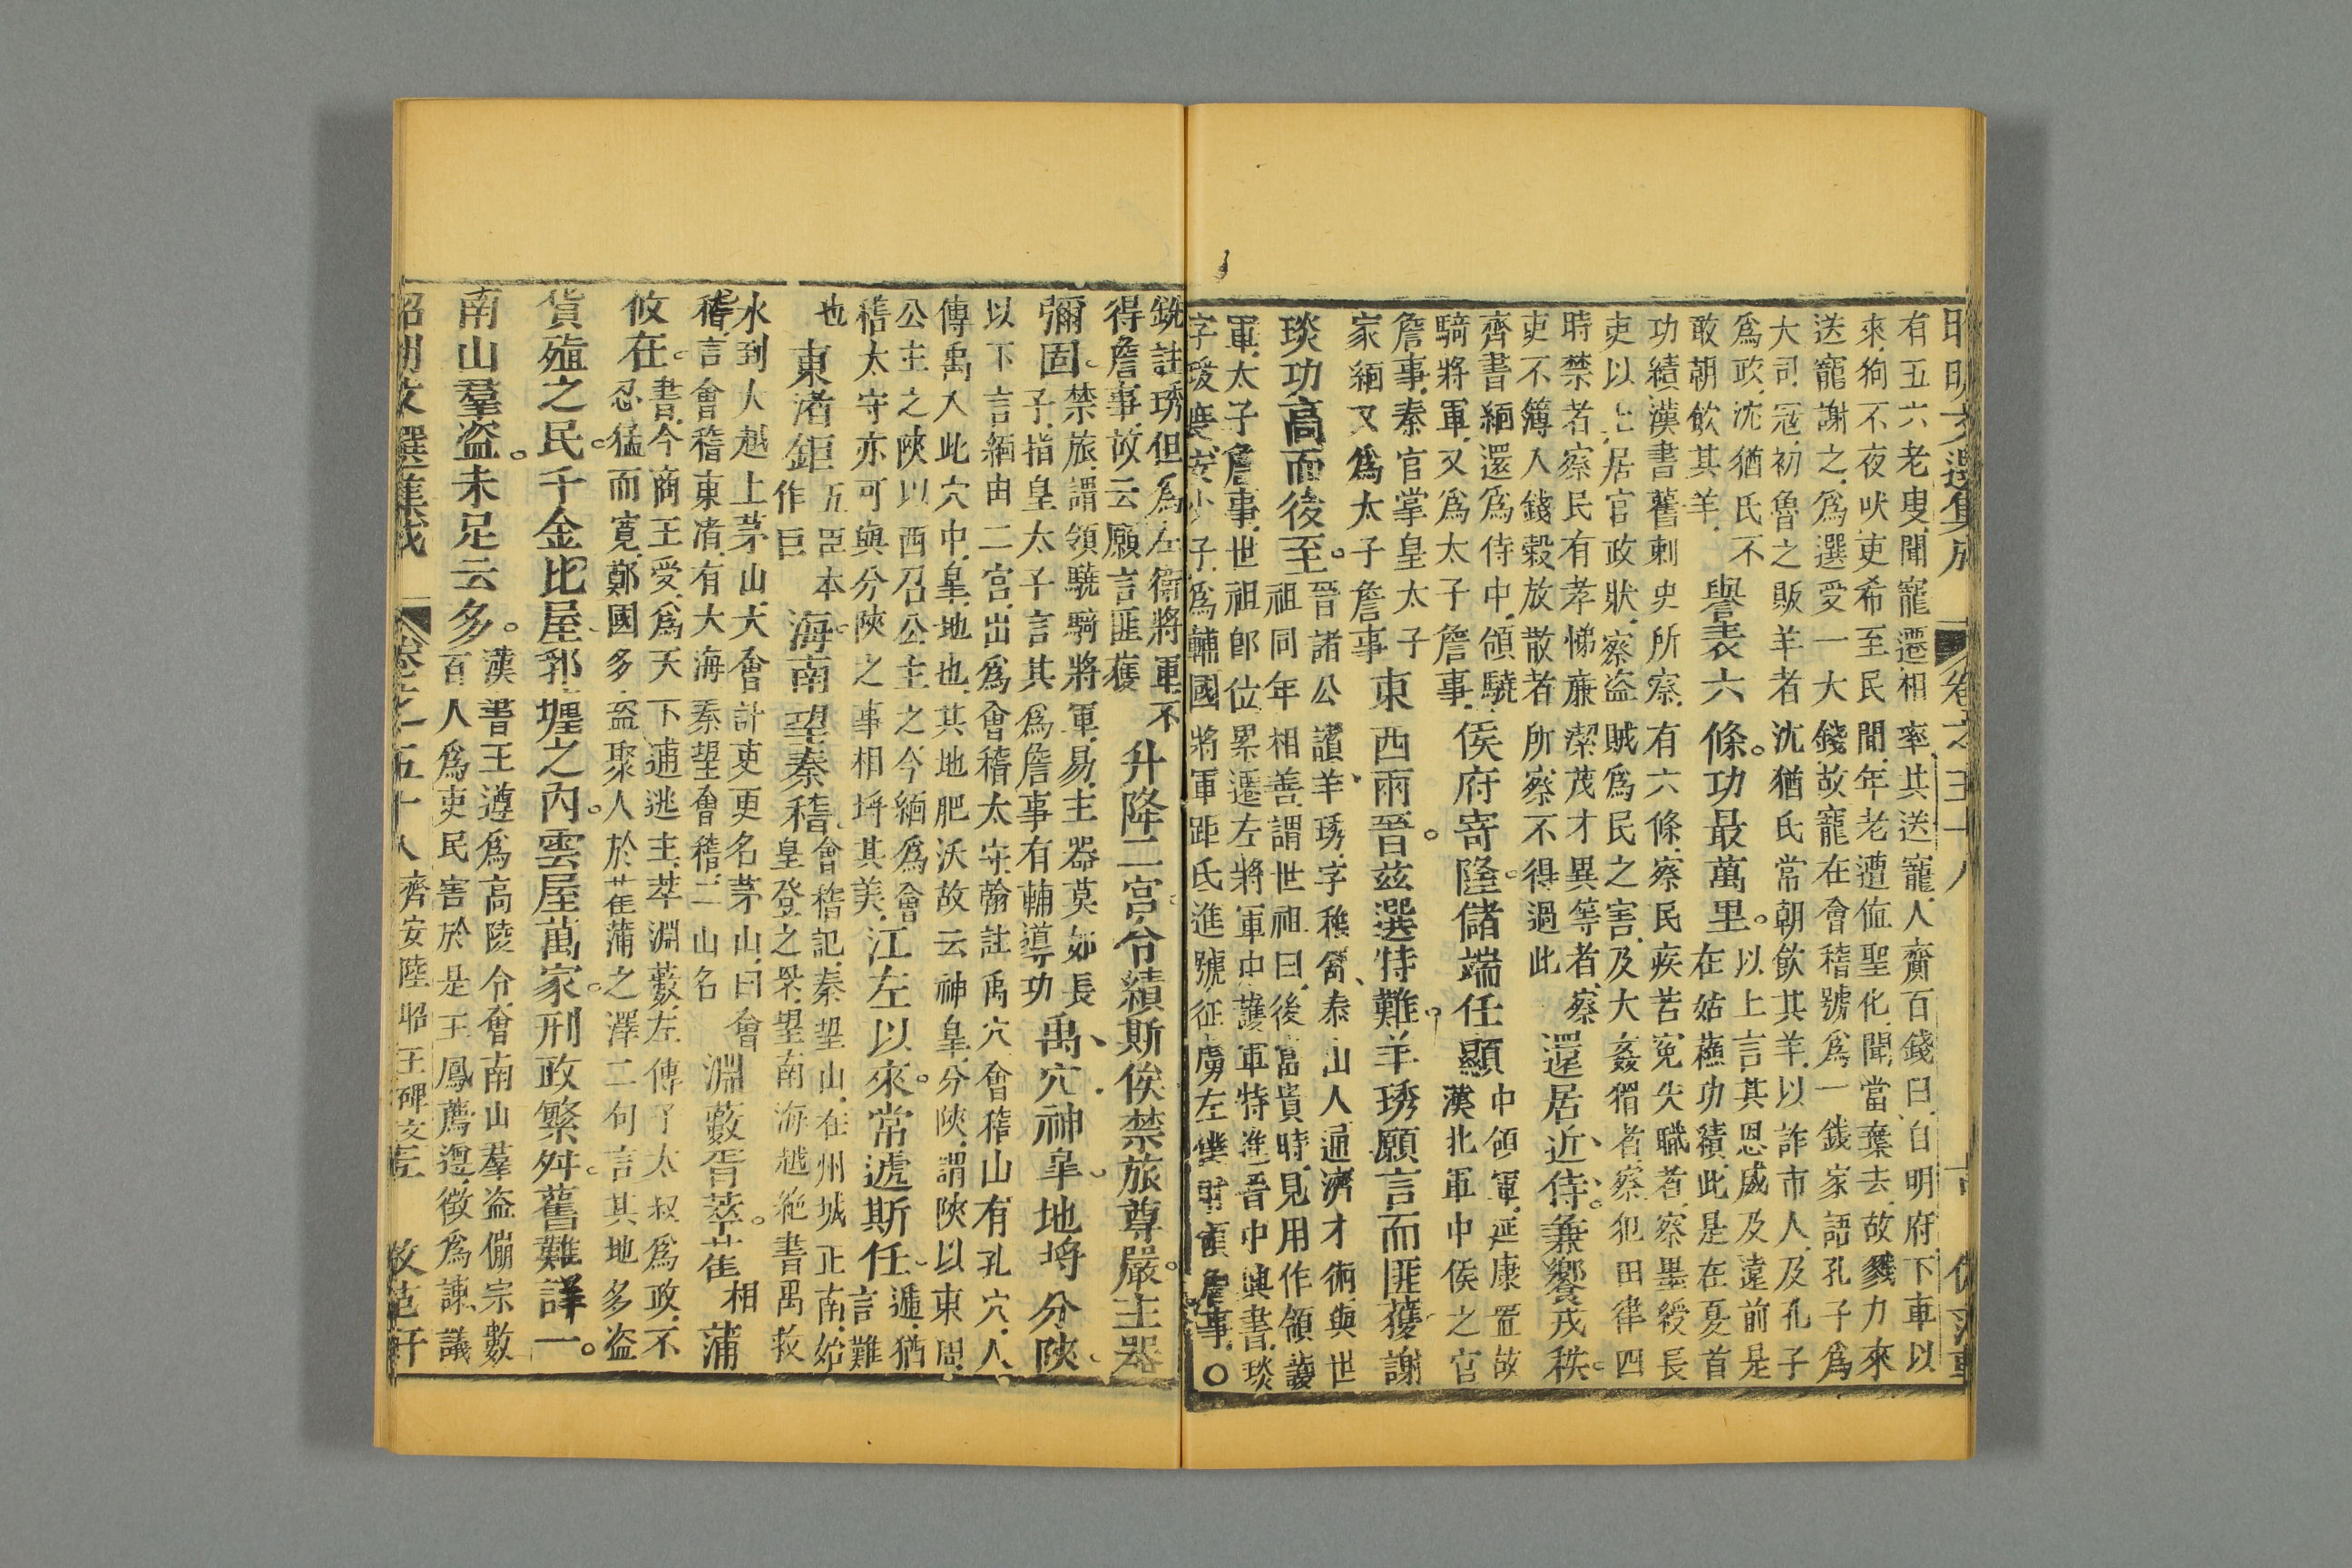 有五六老叟聞寵遷相率共送寵人齎百錢曰自明府下車以
來狗不夜吠吏希至民間年老遭值聖化聞當棄去故戮力來
送寵謝之爲選受一大錢故寵在會稽號爲一錢家語孔子爲
大司冦初魯之販羊者沈猶氏常朝飲其羊以詐市人及孔子
爲政沈猶氏不
敢朝飲其羊
譽表六條功最萬里
以上言其恩威及遠前是
在姑蘓功績此是在夏首
功績漢書舊刺史所察有六條察民疾苦寃失職者察墨綬長
吏以上居官政狀察盗賊爲民之害及大姦猾者察犯田律四
時禁者察民有孝悌廉潔茂才異等者察
吏不簿入錢榖放散者所察不得過此
還居近侍兼饗戎秩
齊書緬還爲侍中領驍
騎將軍又爲太子詹事
侯府寄隆儲端任顯
中領軍延康置故
漢北軍中侯之官
詹事秦官掌皇太子
家緬又爲太子詹事
東西兩晉兹選特難羊琇願言而匪獲謝
琰功高而後至
晉諸公讃羊琇字稚舒泰山人通濟才術與世
祖同年相善謂世祖曰後富貴時見用作領護
軍太子詹事世祖卽位累遷左將軍中護軍特進晉中興書琰
字瑗度安少子爲輔國將軍距氏進號征虜左僕射領詹事○
銑註琇但爲左衛將軍不
得詹事故云願言匪獲
升降二宮令績斯俟禁旅尊嚴主器
彌固
禁旅謂領驍騎將軍易主器莫如長
子指皇太子言其爲詹事有輔導功
禹穴神皐地埒分陝
以下言緬由二宮出爲會稽太守翰註禹穴會稽山有孔穴人
傳禹入此穴中皐地也其地地肥沃故云神皐分陝謂陝以東周
公主之陝以西召公主之今緬爲會
稽太守亦可與分陝之事相埒其美
江左以來常遞斯任
遞猶
言難
也
東渚鉅
五臣本
作巨
海南望秦稽
會稽記秦望山在州城正南始
皇登之杲望南海越絶書禹救
水到大越上茅山大會計吏更名茅山曰會
稽言會稽東渚有大海秦望會稽二山名
淵藪胥萃萑
相
蒲
攸在
書今商王受爲天下逋逃主萃淵藪左傳子太叔爲政不
忍猛而寛鄭國多盗聚人於萑蒲之澤二句言其地多盗
貨殖之民千金比屋郛㕓之內雲屋萬家刑政繁舛舊難詳一
南山羣盗未足云多
漢書王遵爲高陵令會南山羣盗傰宗數
百人爲吏民害於是王鳳薦遵徵爲諫議
昭明文選集成 卷之五十八 齊安陸昭王碑文